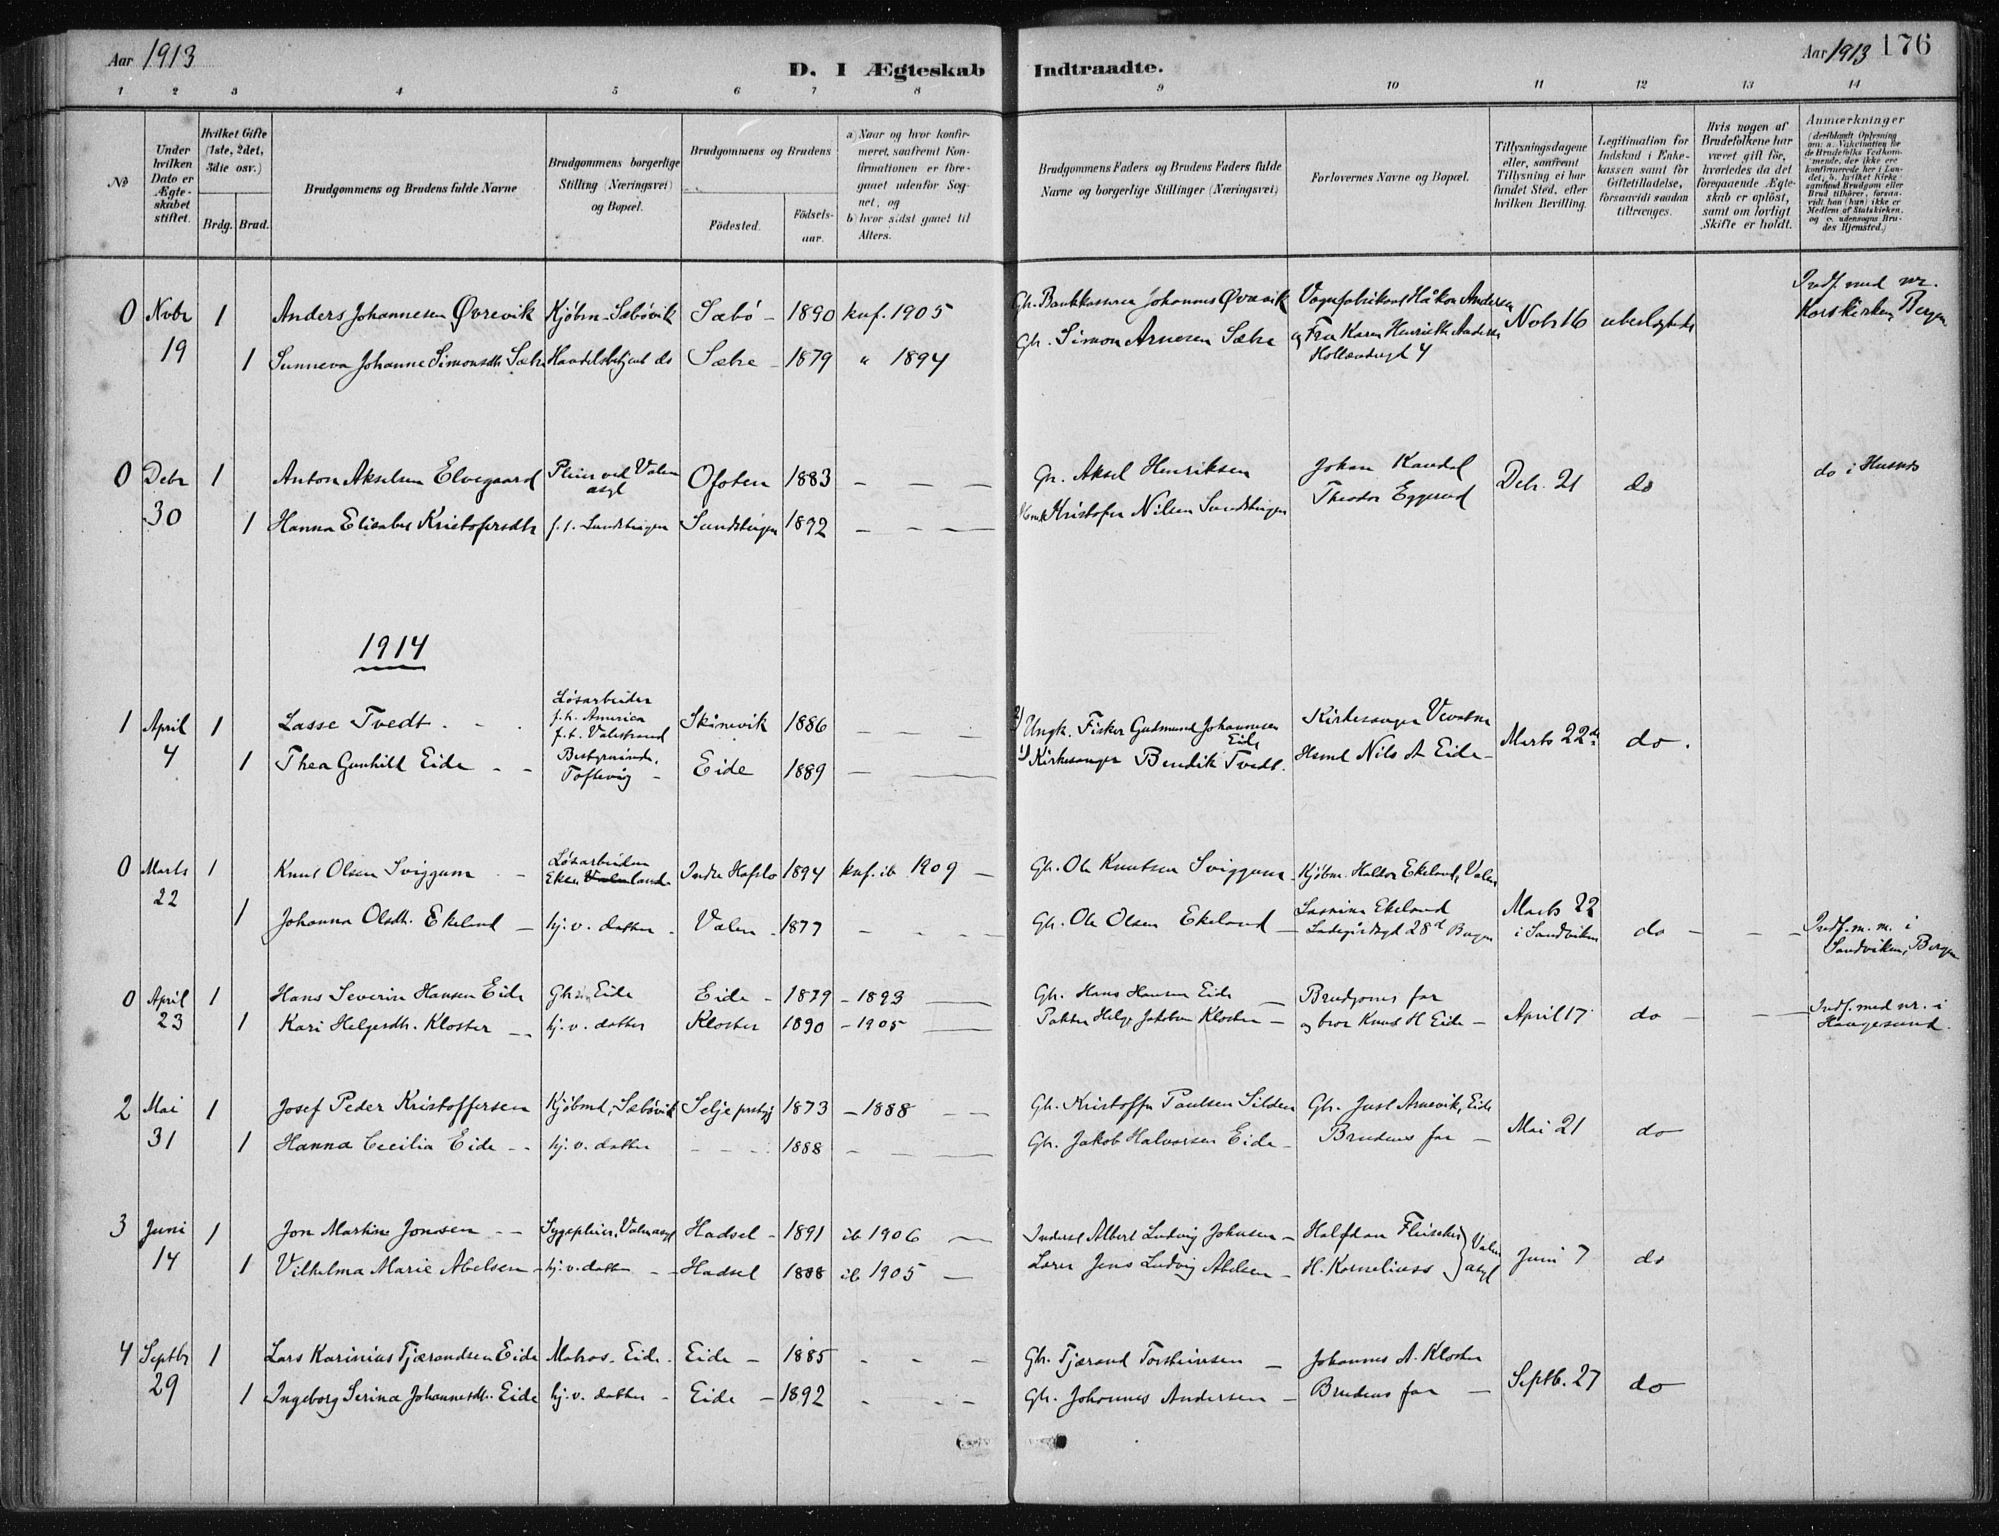 Aar 1913
D. I Ægteskab Indtraadte.
Aar 1913 176
1 2 3 4 5 6 7 8 9 10 11 12 13 14
No
Under hvilken Dato er Ægteskabet stiftet.
Hvilket Gifte (1ste, 2det, 3die osv.)
Brdg. Brud.
Brudgommens og Brudens fulde Navne
Brudgommens borgerlige Stilling (Næringsvei) og Bopæl.
Brudgommens og Brudens
Födested.
Födselsaar.
a) Naar og hvor konfirmeret, saafremt Konfirmationen er foregaaet udenfor Sognet, og
b) hvor sidst gaaet til Alters.
Brudgommens Faders og Brudens Faders fulde Navne og borgerlige Stillinger (Næringsvei)
Forlovernes Navne og Bopæl.
Tillysningsdagene eller, saafremt Tillysning ei har fundet Sted, efter hvilken Bevilling.
Legitimation for Indskud i Enkekassen samt for Giftetilladelse, forsaavidt saadan tiltrænges.
Hvis nogen af Brudefolkene har været gift för, hvorledes da det foregaaende Ægteskab er oplöst, samt om lovligt Skifte er holdt.
Anmærkninger
(deriblandt Oplysning om: a. Vakcination for de Brudefolks Vedkommende, der ikke ere konfirmerede her i Landet, b. hvilket Kirkesamfund Brudgom eller Brud tilhörer, forsaavidt han (hun) ikke er Medlem af Statskirken, og c. udensogns Brudes Hjemsted.)
0 Novbr 1 Anders Johannesen Øvrevik Kjøbm. Sæbövik Sæbö - 1890 knf. 1905 Gb. Johannes Øvrevik Håkon Andersen Novbr 16 Indf. med nr. Korskirken, Bergen
19 1 Sunneva Johanne Simonsdtr Sæbø Handelsbetjent do 1879 " 1894 Gb. Simon Arnesen og Fru Karen Henriette Andersen
4
0 Debr 1 Anton Akselsen Elvegaard Pleier ved Valen asyl Ofoten 1883 - - - Gr. Aksel Henriksen Johan Debr. 21 do do i Husnes
30 1 Hanna Kristofersdtr 1892 - - - Kristofer Nilsen Theodor
1914
1 April 1 Lasse Tvedt - - Løsarbeider f.h. America Skånevik 1886 - - - 2) Ungk. Fisker Gudmund Johannesen Eide Kirkesanger Marts 22de do.
4 1 Thea Gunhild Eide - - Eide 1889 - - 1) Kirkesanger Bendik Tvedt. Nils A Eide -
0 Marts 1 Knut Olsen Sviggum - Løsarbeider Indre Hafslo 1894 knf. ib 1909 - Gb. Ole Knutsen Sviggum - Kjøbm. Haldor Ekeland, Valen
22 1 Johanna Olsdtr. Ekeland - hj. v. datter - Valen - 1877 - - - Gb. Ole Olsen Ekeland - Ekeland 28d Bergen Marts 22 i Sandviken do - - Indf. m. nr. i Sandviken, Bergen
0 April 1 Hans Severin Hansen Eide Eide Eide - 1879 - 1893 - Gb. Hans Hansen Eide - Brudgoms far April 17 do - - Indf. med nr. i Haugesund.
23 1 Kari Helgesdtr. Kloster - - hj. v. datter Kloster 1890 - 1905 - Kloster - og bror Knut H Eide -
2 Mai 1 Josef Peder Kristoffersen Kjøbmd, Sæbövik Selje prstgj 1873 - 1888 - - Gb. Kristoffer Paulsen Silden Gb. Just Arnevik, Eide Mai 21 do
31 1 Hanna Cecilia Eide - - hj. v. datter - - - 1888 - - - Gb. Jakob Halvorsen Eide - Brudens far -
3 Juni 1 Jon Martin Jonsen - - Sygepleier, Valen asyl Hadsel - 1891 ib 1906 - Albert Ludvig Johnsen - Halfdan Fleischer } Valen asyl Juni 7 do
14 1 Vilhelma Marie Abelsen - hj. v. datter - - Hadsel 1888 ib 1905 - Lærer Jens Ludvig Abelsen - H. Korneliuss
4 Septbr 1 Lars Karinius Tjærandsen Eide Matros - Eide - Eide - 1885 - - - Gb. Tjærand Torsteinsen - Johannes A. Kloster Septb. 27 do
29 1 Ingeborg Serina Johannesdtr. Eide hj. v. datter - Eide - 1892 - - - Gb. Johannes Andersen - Brudens far -